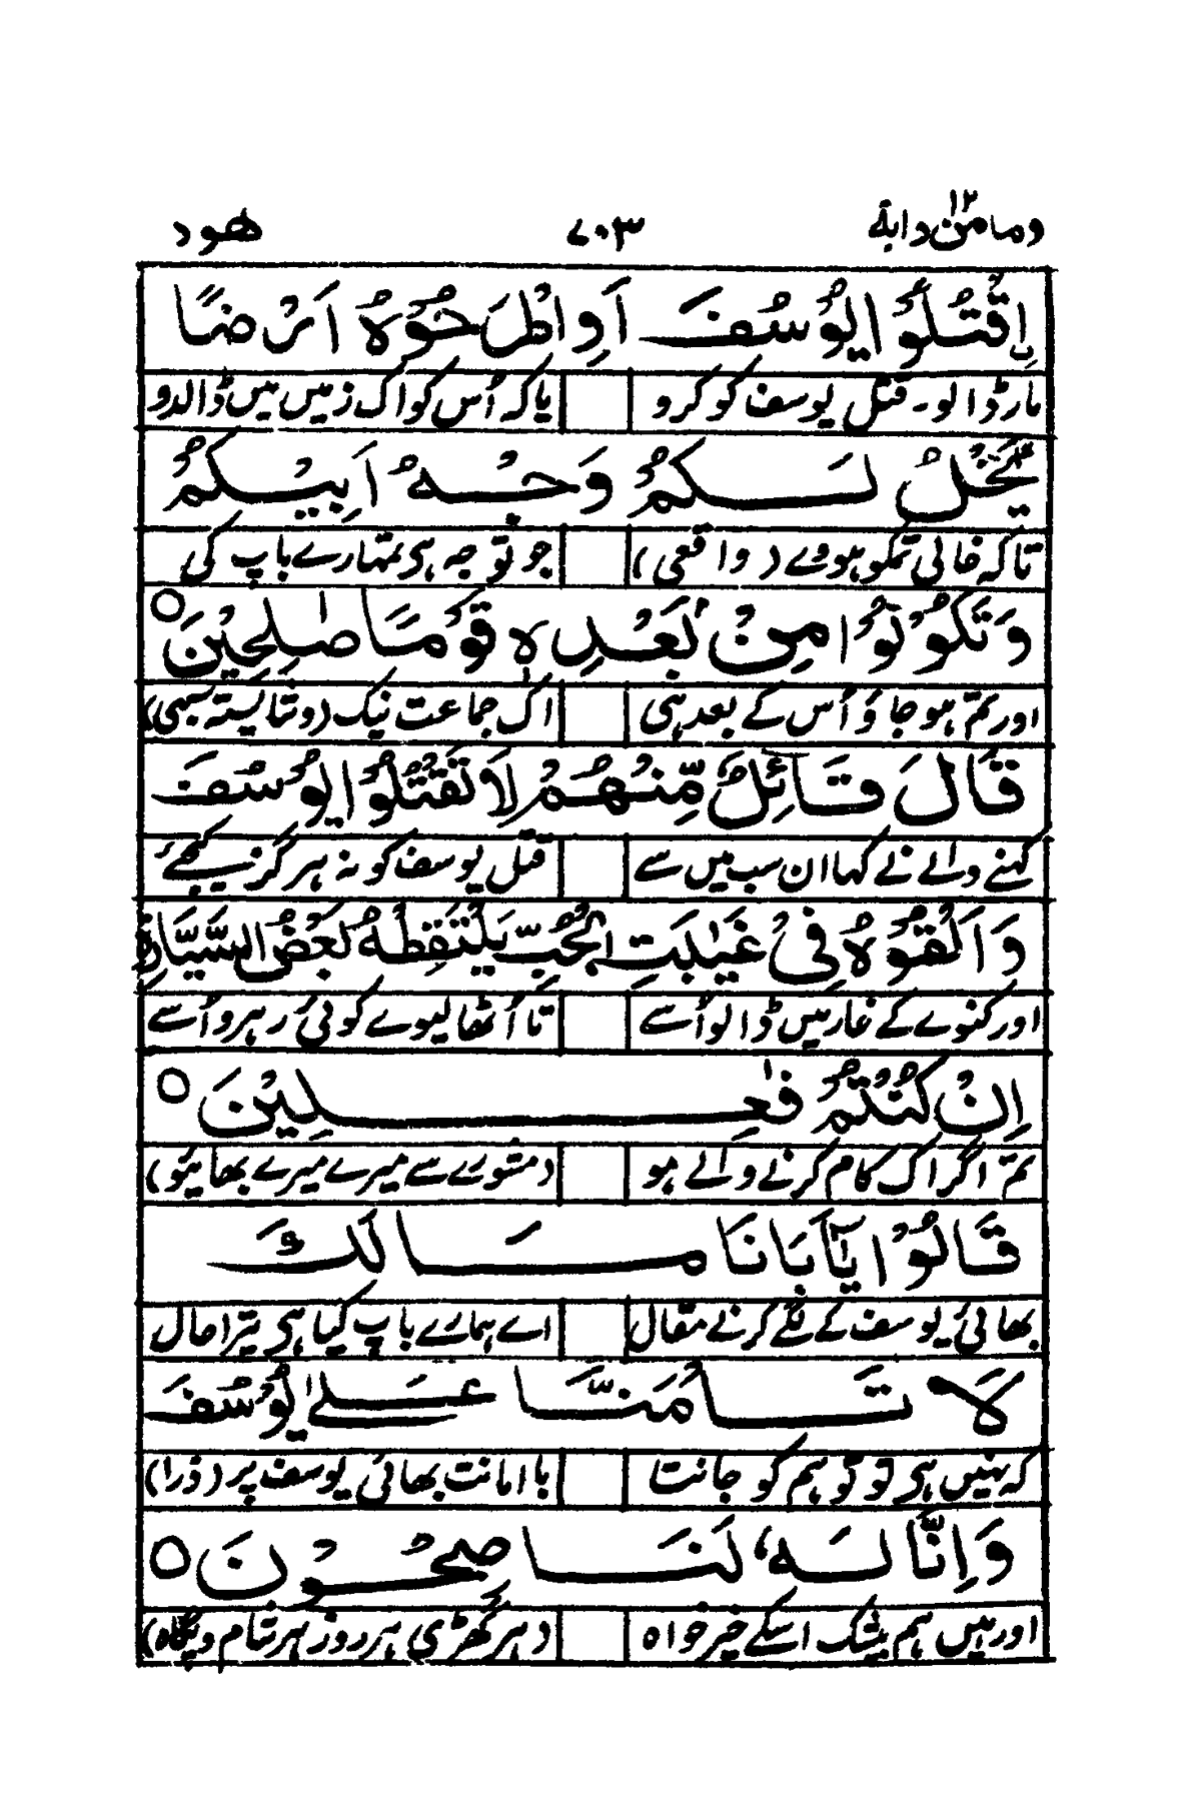 ومامن دابة ۱۲ ۷۰۳ هود
اِقْتُلُوْا يُوْسُفَ اَوِ اطْرَحُوْهُ اَرْضًا
مار ڈالو۔ قتل یوسف کو کرو یا کہ اُس کو اک زمیں میں ڈالدو
يَّخْلُ لَكُمْ وَجْهُ اَبِيْكُمْ
تاکہ خالی تمکو ہووے (واقعی) جو توجہ ہی تمہارے باپ کی
وَتَكُوْنُوْا مِنْ بَعْدِهٖ قَوْمًا صٰلِحِيْنَ ○
اور تم ہو جاؤ اُس کے بعد ہی اک جماعت نیک (و شایستہ سبھی)
قَالَ قَآئِلٌ مِّنْهُمْ لَا تَقْتُلُوْا يُوْسُفَ
کہنے والے نے کہا ان سب میں سے قتل یوسف کو نہ ہرگز کیجئے
وَاَلْقُوْهُ فِيْ غَيٰبَتِ الْجُبِّ يَلْتَقِطْهُ بَعْضُ السَّيَّارَةِ
اور کنوے کے غار میں ڈالو اُسے تا اُٹھا لیوے کوئی رہرو اُسے
اِنْ كُنْتُمْ فٰعِلِيْنَ ○
تم اگر اک کام کرنے والے ہو (مشورے سے میرے میرے بھائیو)
قَالُوْا يٰٓاَبَانَا مَالَكَ
بھائی یوسف کے لگے کرنے مقال اے ہمارے باپ کیا ہی تیرا حال
لَا تَاْمَنَّا عَلٰى يُوْسُفَ
کہ نہیں ہی تو تو ہم کو جانتا با امانت بھائی یوسف پر (ذرا)
وَاِنَّا لَهٗ لَنَا صِحُوْنَ ○
اور ہیں ہم بیشک اسکے خیر خواہ (ہر گھڑی ہر روز ہر شام و پگاہ)